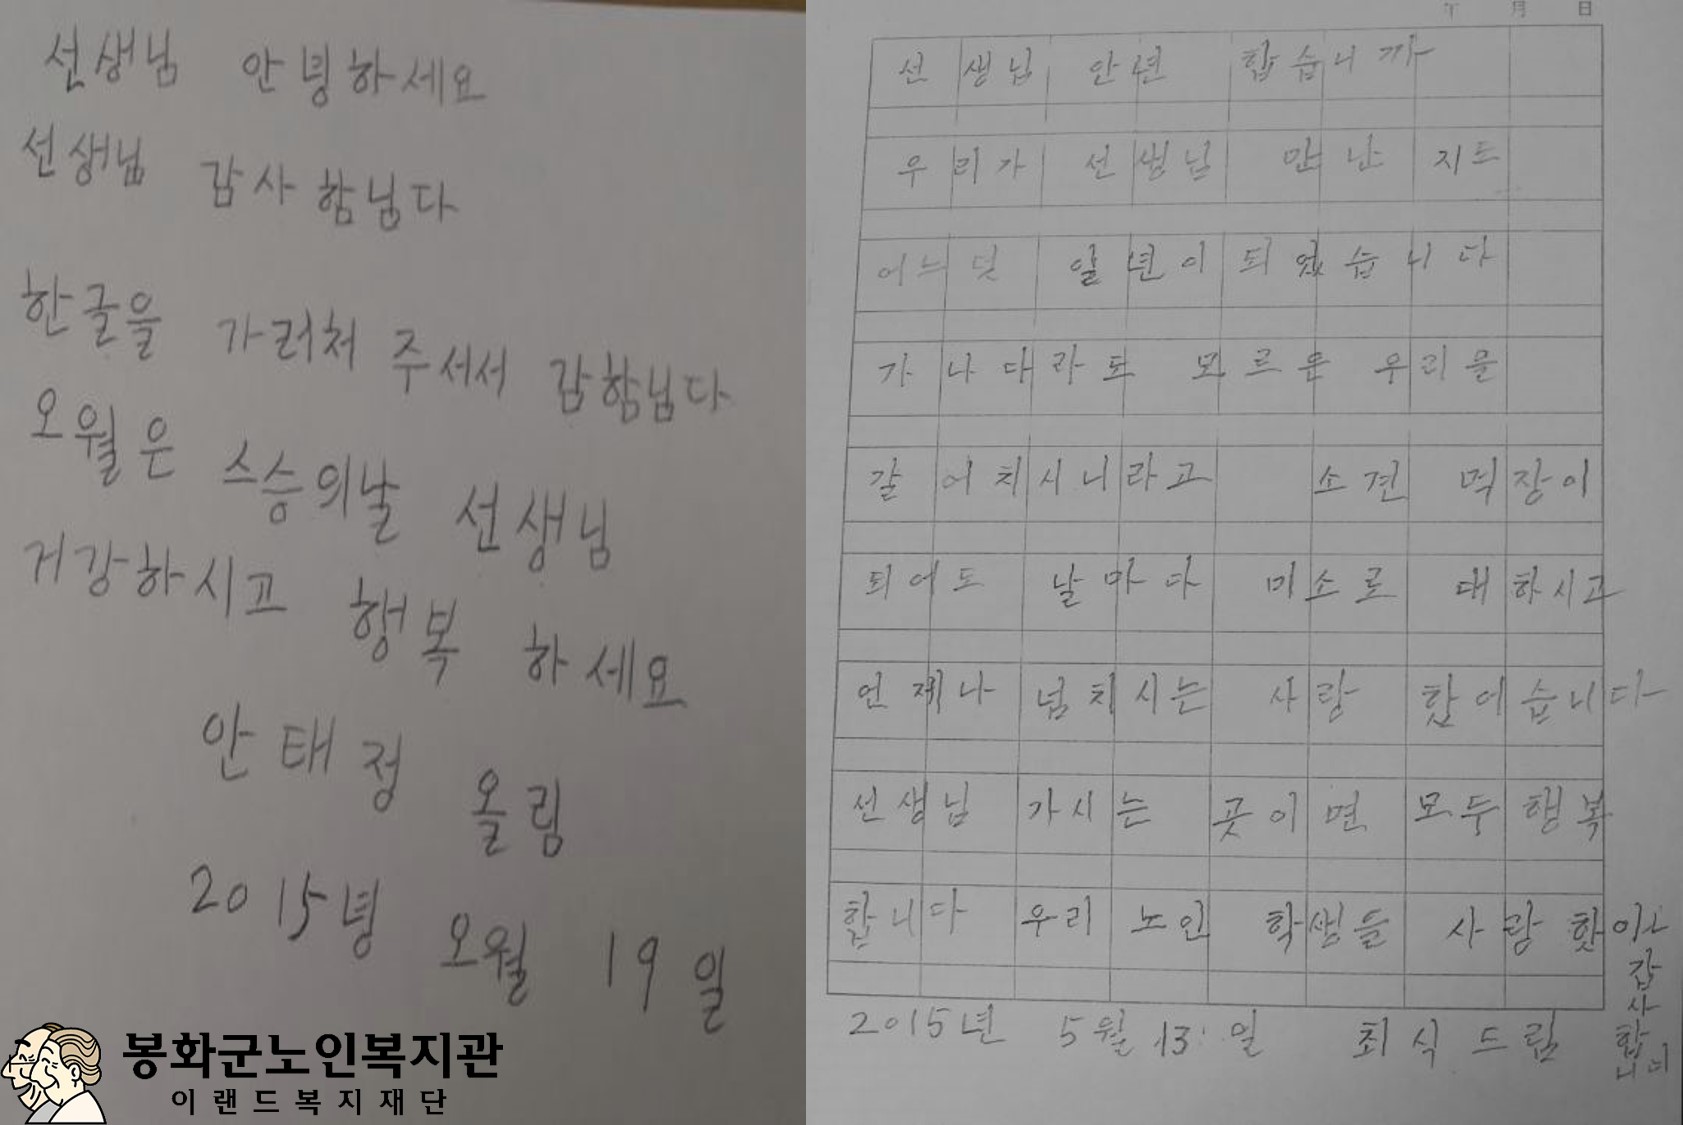 선생님 안녕하세요
선생님 감사 함님다
한글을 가러처 주서서 감함님다
오월은 스승의날 선생님
거강하시고 행복 하세요
안태정 올림
2015녕 오월 19일
봉화군노인복지관
이랜드복지재단
年 月 日
선생님 안년 합습니까
우리가 선생님 만난 지도
어늬덧 일년이 되었습니다
가나다라도 모르은 우리을
갈어치시니라고 소견 먹장이
되어도 날마다 미소로 대하시고
언제나 넘치시는 사랑 합에습니다
선생님 가시는 곳이면 모두 행복
합니다 우리 노인 학생들 사랑
감사합니
2015년 5월 13일 최식 드림